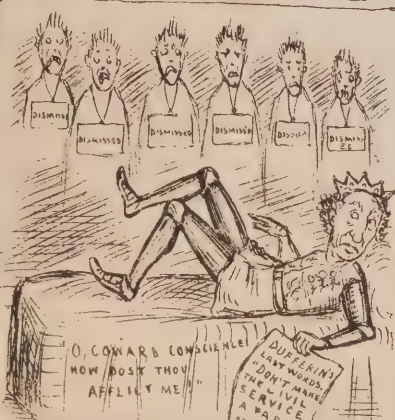 DISMISSED
DISMISSED
DISMISSED
DISMISSED
DISMISSED
"O, COWARD CONSCIENCE!
HOW DOST THOU
AFFLICT ME!"
DUFFERIN'S
LAST WORDS.
"DON'T MAKE
THE CIVIL
SERVICE
A FARCE